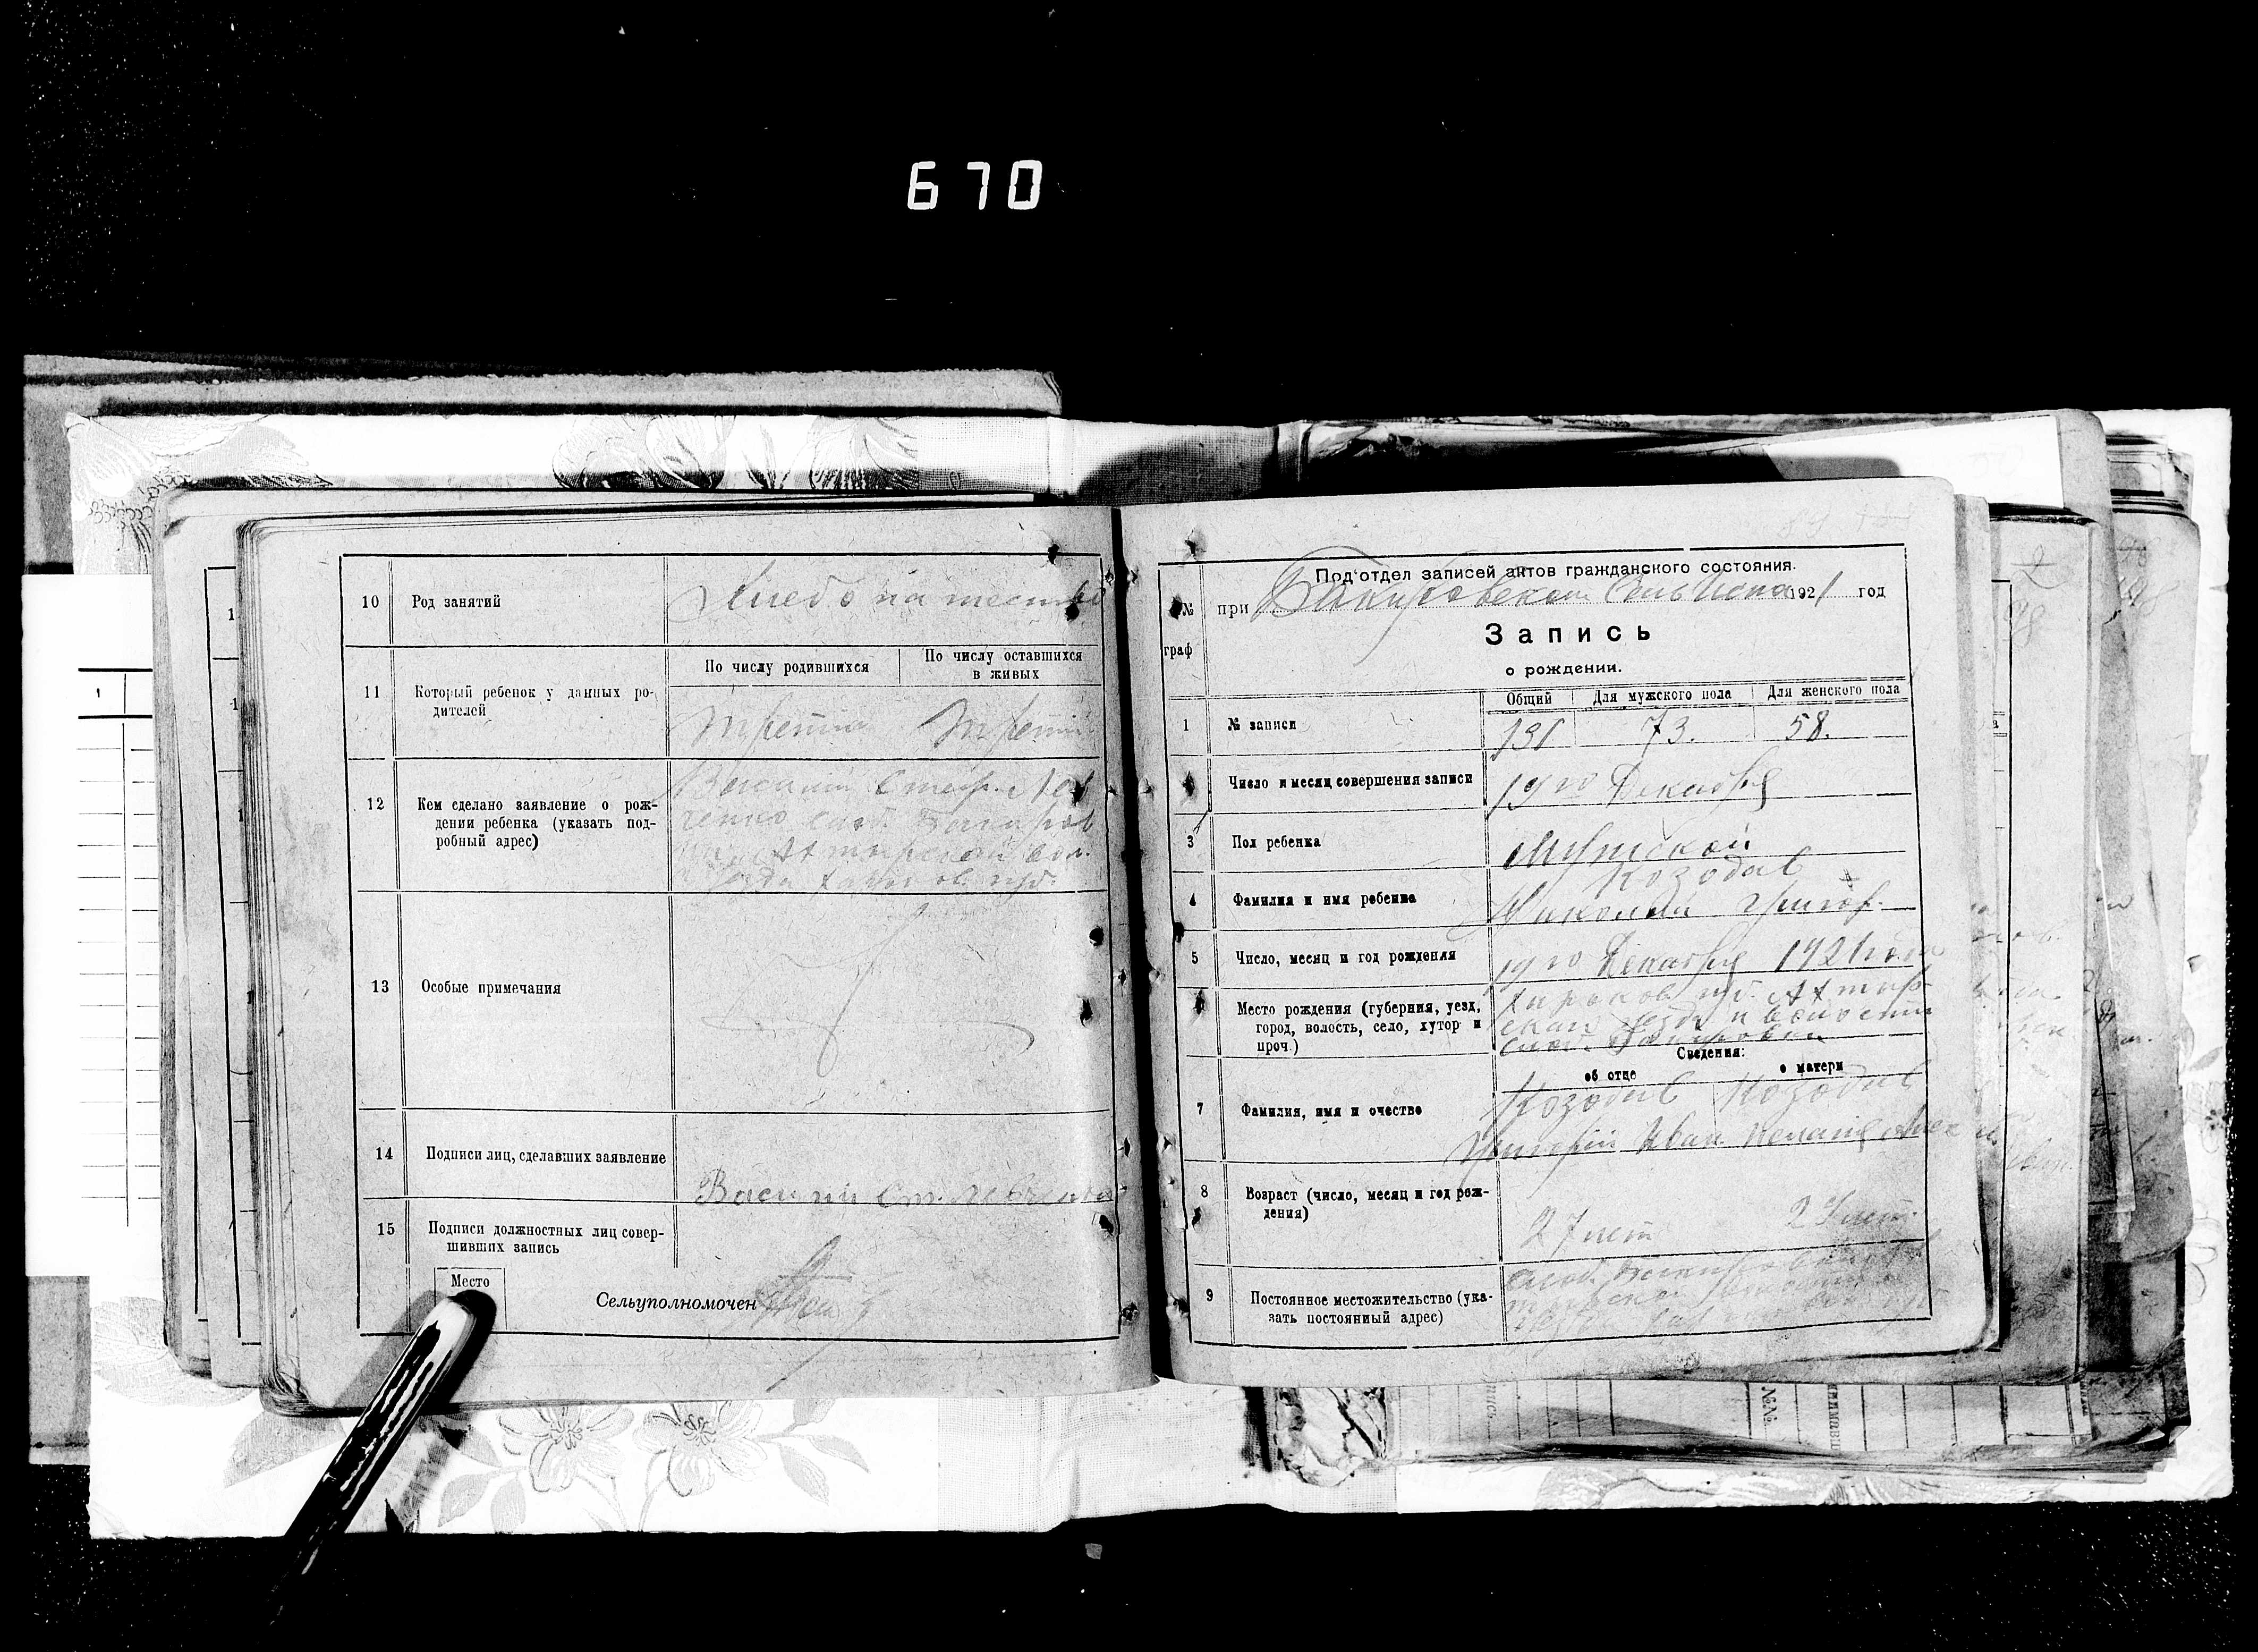 670
10 Род занятий
Хлебопашество
11 Который ребенок у данных ро-
дителей
По числу родившихся
По числу оставшихся
в живых
третий третий
12 Кем сделано заявление о рож-
дении ребенка (указать под-
робный адрес)
Василий Стеф. Лев
ченко слоб. Бакиров
Ахтырской вол.
уезда Харьков. губ.
13 Особые примечания
14 Подписи лиц, сделавших заявление
Василий Ст. Левченко
15 Подписи должностных лиц совер-
шивших запись
Место
Сельуполномочен
№
граф
Под'отдел записей актов гражданского состояния.
при Бакировском 1921 год
Запись
о рождении.
Общий Для мужского пола Для женского пола
1 № записи 131 73. 58.
Число и месяц совершения записи 19го Декабря
3 Пол ребенка Мужской
4 Фамилия и имя ребенка
Козодав
Николай Григор.
5 Число, месяц и год рождения 19го Декабря 1921 года
Место рождения (губерния, уезд,
город, волость, село, хутор и
проч.)
Харьков. губ. Ахтыр
скаго уезда и волости
слоб. Бакировки
Сведения:
об отце о матери
7 Фамилия, имя и очество
Козодав Козодав
Григорий Иван.
8 Возраст (число, месяц и год рож-
дения)
27 лет
9 Постоянное местожительство (ука-
зать постоянный адрес)
слоб. Бакировка